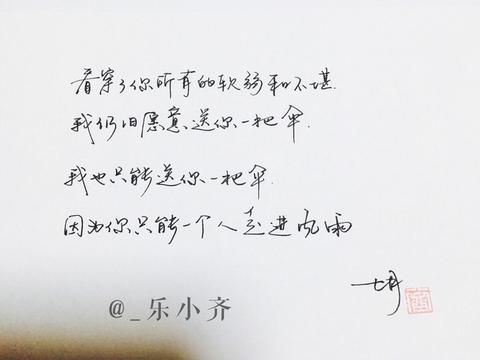 看穿了你所有的软弱和不堪.
我们仍旧愿意送你一把伞.
我也只能送你一把伞.
因为你只能一个人走进风雨
七月
@_乐小齐